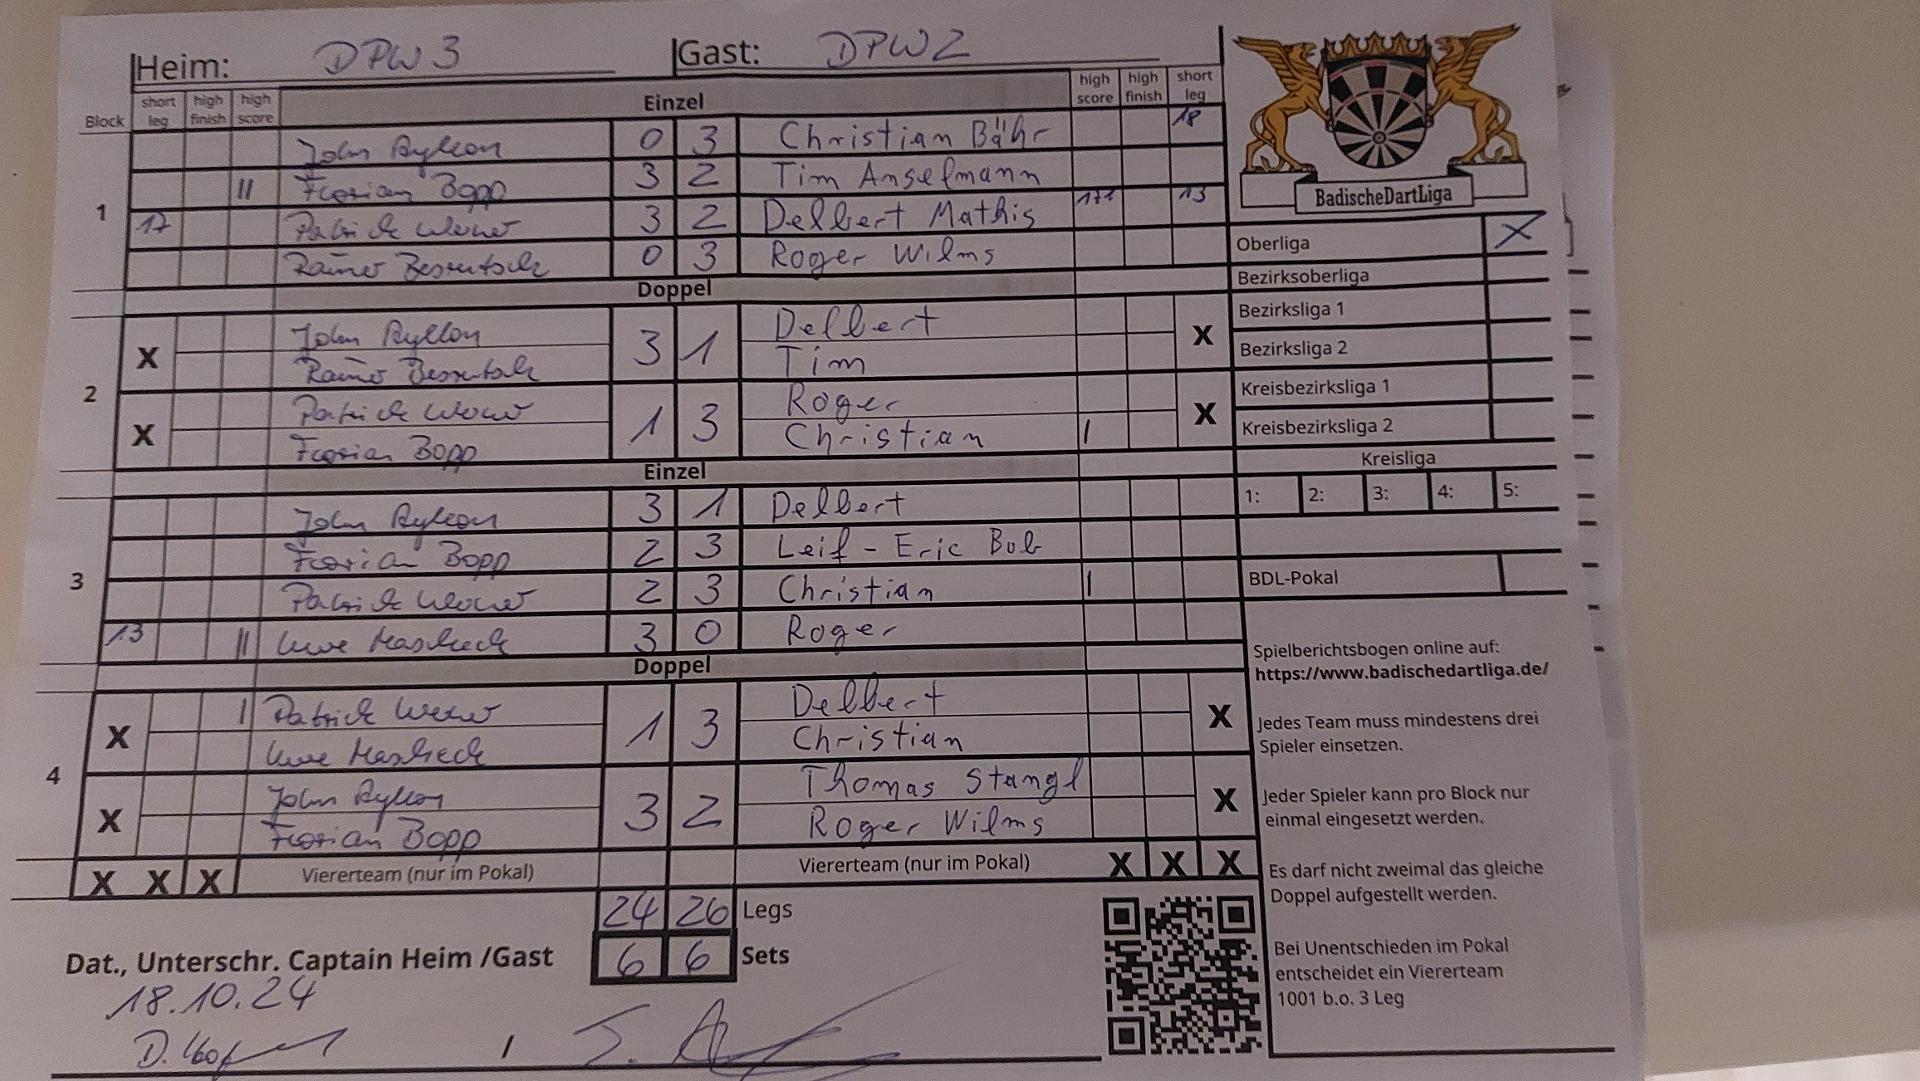 Heim: DPW 3 Gast: DPW 2
Block short leg high finish high score Einzel high score high finish short leg
1
John Ryllon 0 3 Christian Bähr 18
|| Florian Bopp 3 2 Tim Anselmann
17 Patrick 3 2 Delbert Mathis 171 13
Rainer 0 3 Roger Wilms
Doppel
2
X John Ryllon 3 1 Delbert X
Rainer Tim
X Patrick 1 3 Roger X
Florian Bopp Christian |
Einzel
3
John Ryllon 3 1 Delbert
Florian Bopp 2 3 Leif - Eric Bob
Patrick 2 3 Christian |
13 || Uwe 3 0 Roger
Doppel
4
X | Patrick 1 3 Delbert X
Uwe Christian
X John Ryllon 3 2 Thomas Stangl X
Florian Bopp Roger Wilms
X X X Viererteam (nur im Pokal) Viererteam (nur im Pokal) X X X
24 26 Legs
6 6 Sets
Dat., Unterschr. Captain Heim /Gast
18.10.24
/
BadischeDartLiga
Oberliga X
Bezirksoberliga
Bezirksliga 1
Bezirksliga 2
Kreisbezirksliga 1
Kreisbezirksliga 2
Kreisliga
1: 2: 3: 4: 5:
BDL-Pokal
Spielberichtsbogen online auf:
https://www.badischedartliga.de/
Jedes Team muss mindestens drei
Spieler einsetzen.
Jeder Spieler kann pro Block nur
einmal eingesetzt werden.
Es darf nicht zweimal das gleiche
Doppel aufgestellt werden.
Bei Unentschieden im Pokal
entscheidet ein Viererteam
1001 b.o. 3 Leg